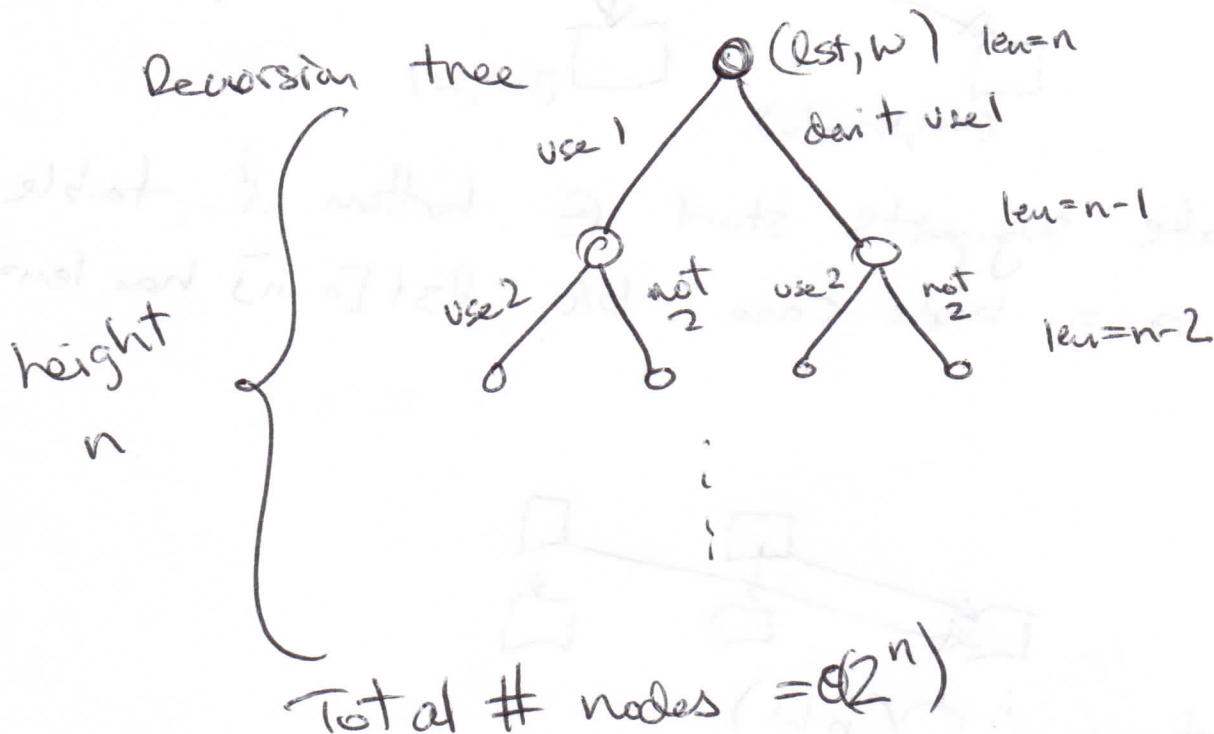 Recursion tree
(lst, w) len=n
use 1
don't use 1
len=n-1
use 2
not 2
use 2
not 2
len=n-2
height n
Total # nodes = Θ(2^n)